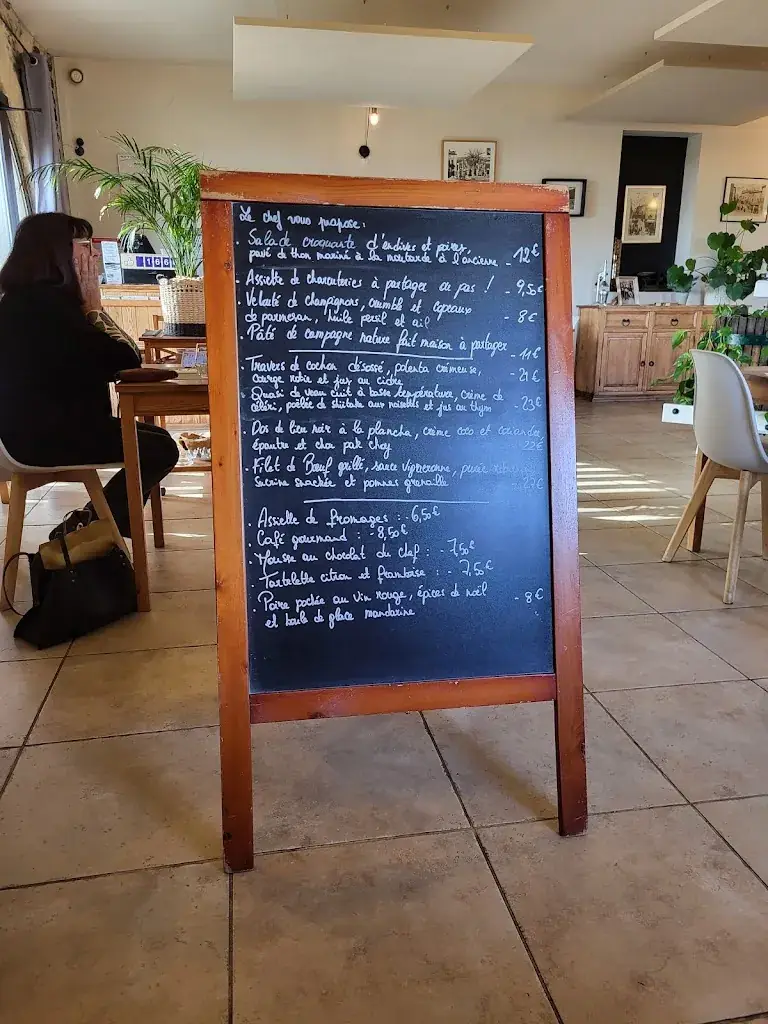 Le chef vous propose :
. Salade croquante d'endives et poires,
pavé de thon mariné à la moutarde à l'ancienne - 12€
. Assiette de charcuteries à partager ou pas ! - 9,50€
. Velouté de champignons, crumble et copeaux
de parmesan, huile persil et ail - 8€
. Pâté de campagne nature fait maison à partager - 11€
. Travers de cochon désossé, polenta crémeuse,
courge rotie et jus au cidre - 21€
. Quasi de veau cuit à basse température, crème de
céléri, poêlée de shiitake aux noisettes et jus au thym - 23€
. Dos de lieu noir à la plancha, crème coco et coriandre,
épautre et chou pak choy 22€
. Filet de Bœuf grillé, sauce vigneronne, purée
Sucrine snackée et pommes grenaille
. Assiette de fromages : - 6,50€
. Café gourmand : - 8,50€
. Mousse au chocolat du chef : - 7,50€
. Tartelette citron et framboise : - 7,50€
. Poire pochée au vin rouge, épices de noël
et boule de glace mandarine - 8€